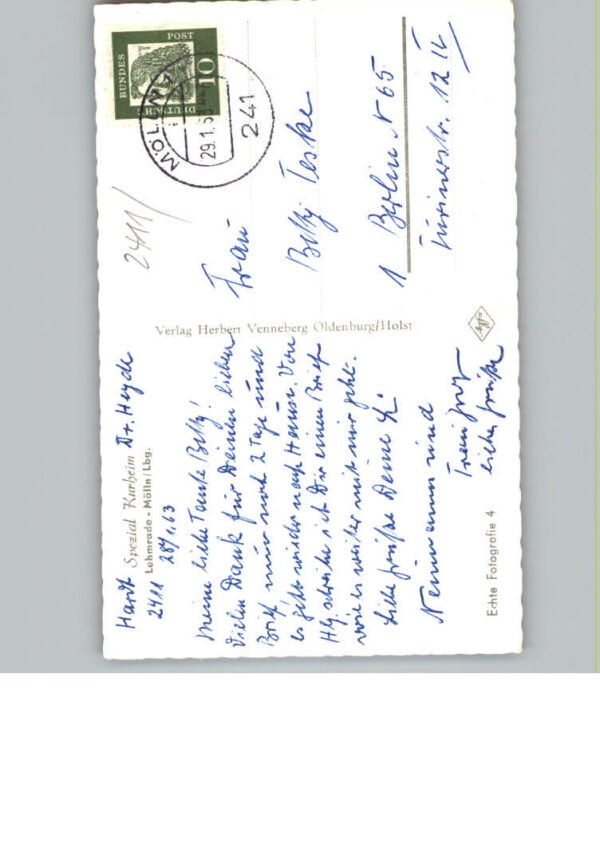 Hardt Spezial Kurheim Dr. Heyde
Lehmrade - Mölln/Lbg.
2411 28/1.63
Meine liebe Tante Betty!
Vielen Dank für Deinen lieben
Brief nur noch 2 Tage und
es geht wieder nach Hause. Von
Hbg schreibe ich Dir einen Brief
wie es weiter mit mir geht.
Liebe Grüße Deine L.
Neumann und
liebe Grüße
Echte Fotografie 4
Verlag Herbert Venneberg Oldenburg/Holst
Agfa
2411/
DEUTSCHE
BUNDES
POST
Dürer
10
MÖLLN
29.1.63
241
Frau
Betty Teske
1 Berlin N 65
Turinerstr. 12 IV